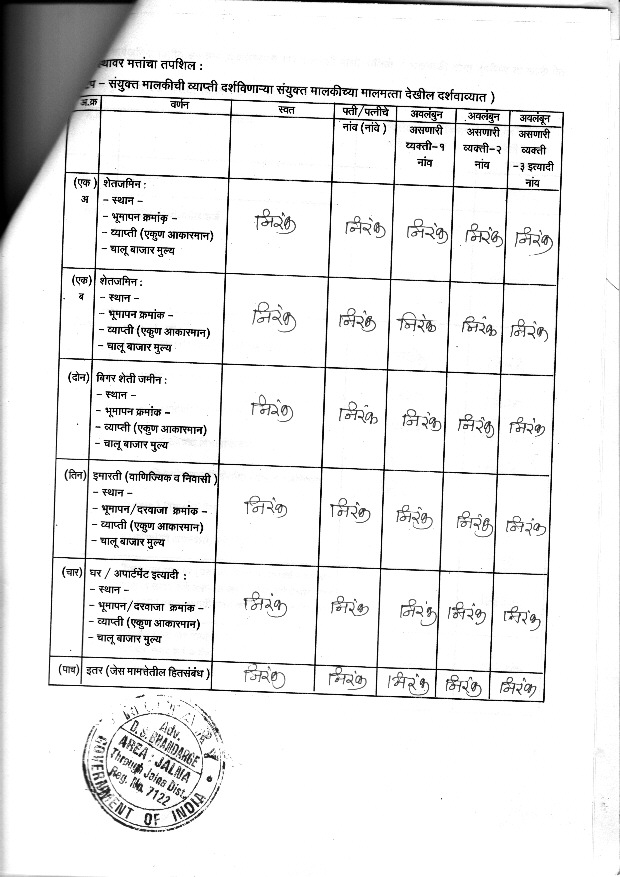 स्थावर मत्तांचा तपशिल :
टिप – संयुक्त मालकीची व्याप्ती दर्शविणाऱ्या संयुक्त मालकीच्या मालमत्ता देखील दर्शवाव्यात )
अ.क्र वर्णन स्वत पती/पत्नीचे नांव (नांवे) अवलंबुन असणारी व्यक्ती-१ नांव अवलंबुन असणारी व्यक्ती-२ नांव अवलंबून असणारी व्यक्ती -३ इत्यादी नांय
(एक) अ शेतजमिन :
– स्थान –
– भूमापन क्रमांक –
– व्याप्ती (एकुण आकारमान)
– चालू बाजार मुल्य
निरंक निरंक निरंक निरंक निरंक
(एक) ब शेतजमिन :
– स्थान –
– भूमापन क्रमांक –
– व्याप्ती (एकुण आकारमान)
– चालू बाजार मुल्य
निरंक निरंक निरंक निरंक निरंक
(दोन) बिगर शेती जमीन :
– स्थान –
– भूमापन क्रमांक –
– व्याप्ती (एकुण आकारमान)
– चालू बाजार मुल्य
निरंक निरंक निरंक निरंक निरंक
(तिन) इमारती (वाणिज्यिक व निवासी )
– स्थान –
– भूमापन/दरवाजा क्रमांक –
– व्याप्ती (एकुण आकारमान)
– चालू बाजार मुल्य
निरंक निरंक निरंक निरंक निरंक
(चार) घर / अपार्टमेंट इत्यादी :
– स्थान –
– भूमापन/दरवाजा क्रमांक –
– व्याप्ती (एकुण आकारमान)
– चालू बाजार मुल्य
निरंक निरंक निरंक निरंक निरंक
(पाच) इतर (जेस मामत्तेतील हितसंबंध ) निरंक निरंक निरंक निरंक निरंक
Adv.
D.S. DHANDARGE
AREA - JALNA
Through Jalna Dist.
Reg. No. 7122
GOVERNMENT OF INDIA